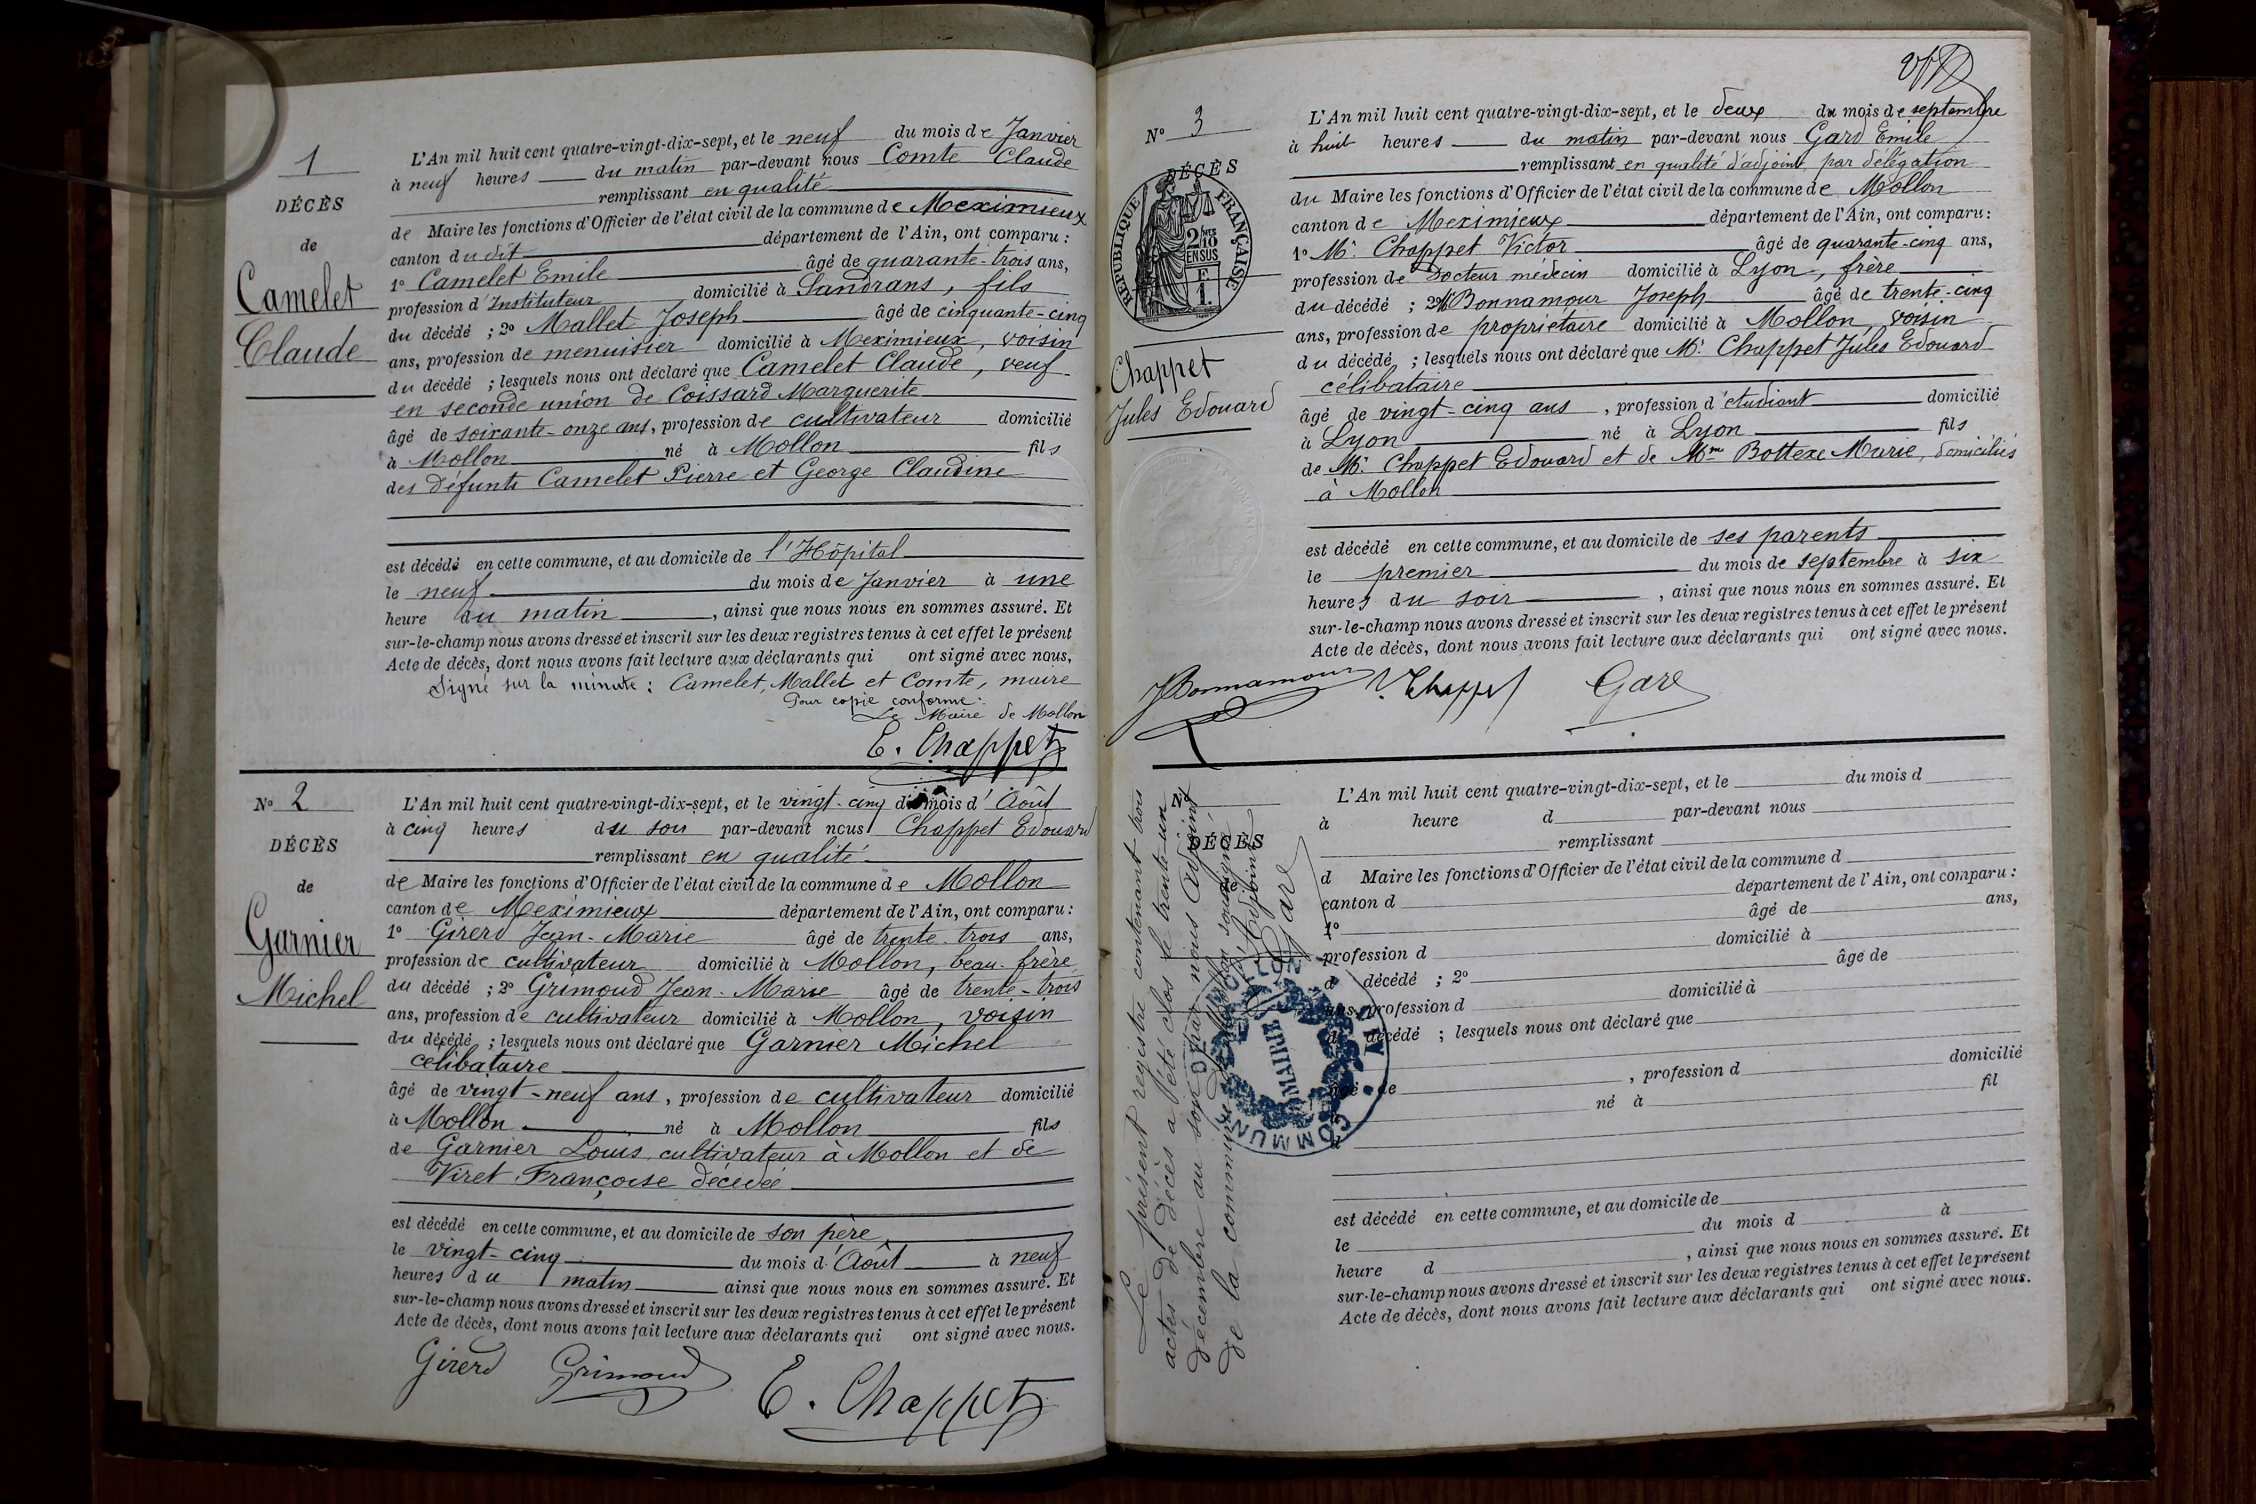 1
DÉCÈS
de
Camelet
Claude
L'An mil huit cent quatre-vingt-dix-sept, et le neuf du mois de Janvier
à neuf heures du matin par-devant nous Comte Claude
remplissant en qualité
de Maire les fonctions d'Officier de l'état civil de la commune de Meximieux
canton du dit département de l'Ain, ont comparu :
1º Camelet Emile âgé de quarante-trois ans,
profession d'Instituteur domicilié à Sandrans, fils
du décédé ; 2º Mallet Joseph âgé de cinquante-cinq
ans, profession de menuisier domicilié à Meximieux, voisin
du décédé ; lesquels nous ont déclaré que Camelet Claude, veuf
en seconde union de Coissard Marguerite
âgé de soixante-onze ans, profession de cultivateur domicilié
à Mollon né à Mollon fils
des défunts Camelet Pierre et George Claudine
est décédé en cette commune, et au domicile de l'Hôpital
le neuf du mois de Janvier à une
heure du matin, ainsi que nous nous en sommes assuré. Et
sur-le-champ nous avons dressé et inscrit sur les deux registres tenus à cet effet le présent
Acte de décès, dont nous avons fait lecture aux déclarants qui ont signé avec nous,
Signé sur la minute : Camelet, Mallet et Comte, maire
Pour copie conforme :
Le Maire de Mollon
E. Chappet
Nº 2
DÉCÈS
de
Garnier
Michel
L'An mil huit cent quatre-vingt-dix-sept, et le vingt-cinq du mois d'Août
à cinq heures du soir par-devant nous Chappet Edouard
remplissant en qualité
de Maire les fonctions d'Officier de l'état civil de la commune de Mollon
canton de Meximieux département de l'Ain, ont comparu :
1º Girerd Jean-Marie âgé de trente-trois ans,
profession de cultivateur domicilié à Mollon, beau-frère
du décédé ; 2º Grimoud Jean-Marie âgé de trente-trois
ans, profession de cultivateur domicilié à Mollon, voisin
du décédé ; lesquels nous ont déclaré que Garnier Michel
célibataire
âgé de vingt-neuf ans, profession de cultivateur domicilié
à Mollon né à Mollon fils
de Garnier Louis cultivateur à Mollon et de
Viret Françoise décédée
est décédé en cette commune, et au domicile de son père
le vingt-cinq du mois d'Août à neuf
heures du matin ainsi que nous nous en sommes assuré. Et
sur-le-champ nous avons dressé et inscrit sur les deux registres tenus à cet effet le présent
Acte de décès, dont nous avons fait lecture aux déclarants qui ont signé avec nous.
Girerd Grimoud E. Chappet
Nº 3
DÉCÈS
RÉPUBLIQUE FRANÇAISE
2/10
EN SUS
F
1.
Chappet
Jules Edouard
L'An mil huit cent quatre-vingt-dix-sept, et le deux du mois de septembre
à huit heures du matin par-devant nous Gard Emile
remplissant en qualité d'adjoint par délégation
du Maire les fonctions d'Officier de l'état civil de la commune de Mollon
canton de Meximieux département de l'Ain, ont comparu :
1º Mr Chappet Victor âgé de quarante-cinq ans,
profession de Docteur médecin domicilié à Lyon, frère
du décédé ; 2º Bonnamour Joseph âgé de trente-cinq
ans, profession de propriétaire domicilié à Mollon, voisin
du décédé ; lesquels nous ont déclaré que Mr Chappet Jules Edouard
célibataire
âgé de vingt-cinq ans, profession d'étudiant domicilié
à Lyon né à Lyon fils
de Mr Chappet Edouard et de Mme Bottex Marie, domiciliés
à Mollon
est décédé en cette commune, et au domicile de ses parents
le premier du mois de septembre à six
heures du soir, ainsi que nous nous en sommes assuré. Et
sur-le-champ nous avons dressé et inscrit sur les deux registres tenus à cet effet le présent
Acte de décès, dont nous avons fait lecture aux déclarants qui ont signé avec nous.
J Bonnamour V. Chappet Gard
DÉCÈS
de
L'An mil huit cent quatre-vingt-dix-sept, et le du mois d
à heure d par-devant nous
remplissant
d Maire les fonctions d'Officier de l'état civil de la commune d
canton d département de l'Ain, ont comparu :
1º âgé de ans,
profession d domicilié à
d décédé ; 2º âgé de
ans, profession d domicilié à
d décédé ; lesquels nous ont déclaré que
âgé de , profession d domicilié
né à fil
d
est décédé en cette commune, et au domicile de
le du mois d à
heure d , ainsi que nous nous en sommes assuré. Et
sur-le-champ nous avons dressé et inscrit sur les deux registres tenus à cet effet le présent
Acte de décès, dont nous avons fait lecture aux déclarants qui ont signé avec nous.
Le présent registre contenant trois
actes de décès a été clos le trente-un
décembre au soir par nous adjoint
de la commune de Mollon soussigné
L'Adjoint
Gard
COMMUNE DE MOLLON AIN
MAIRIE